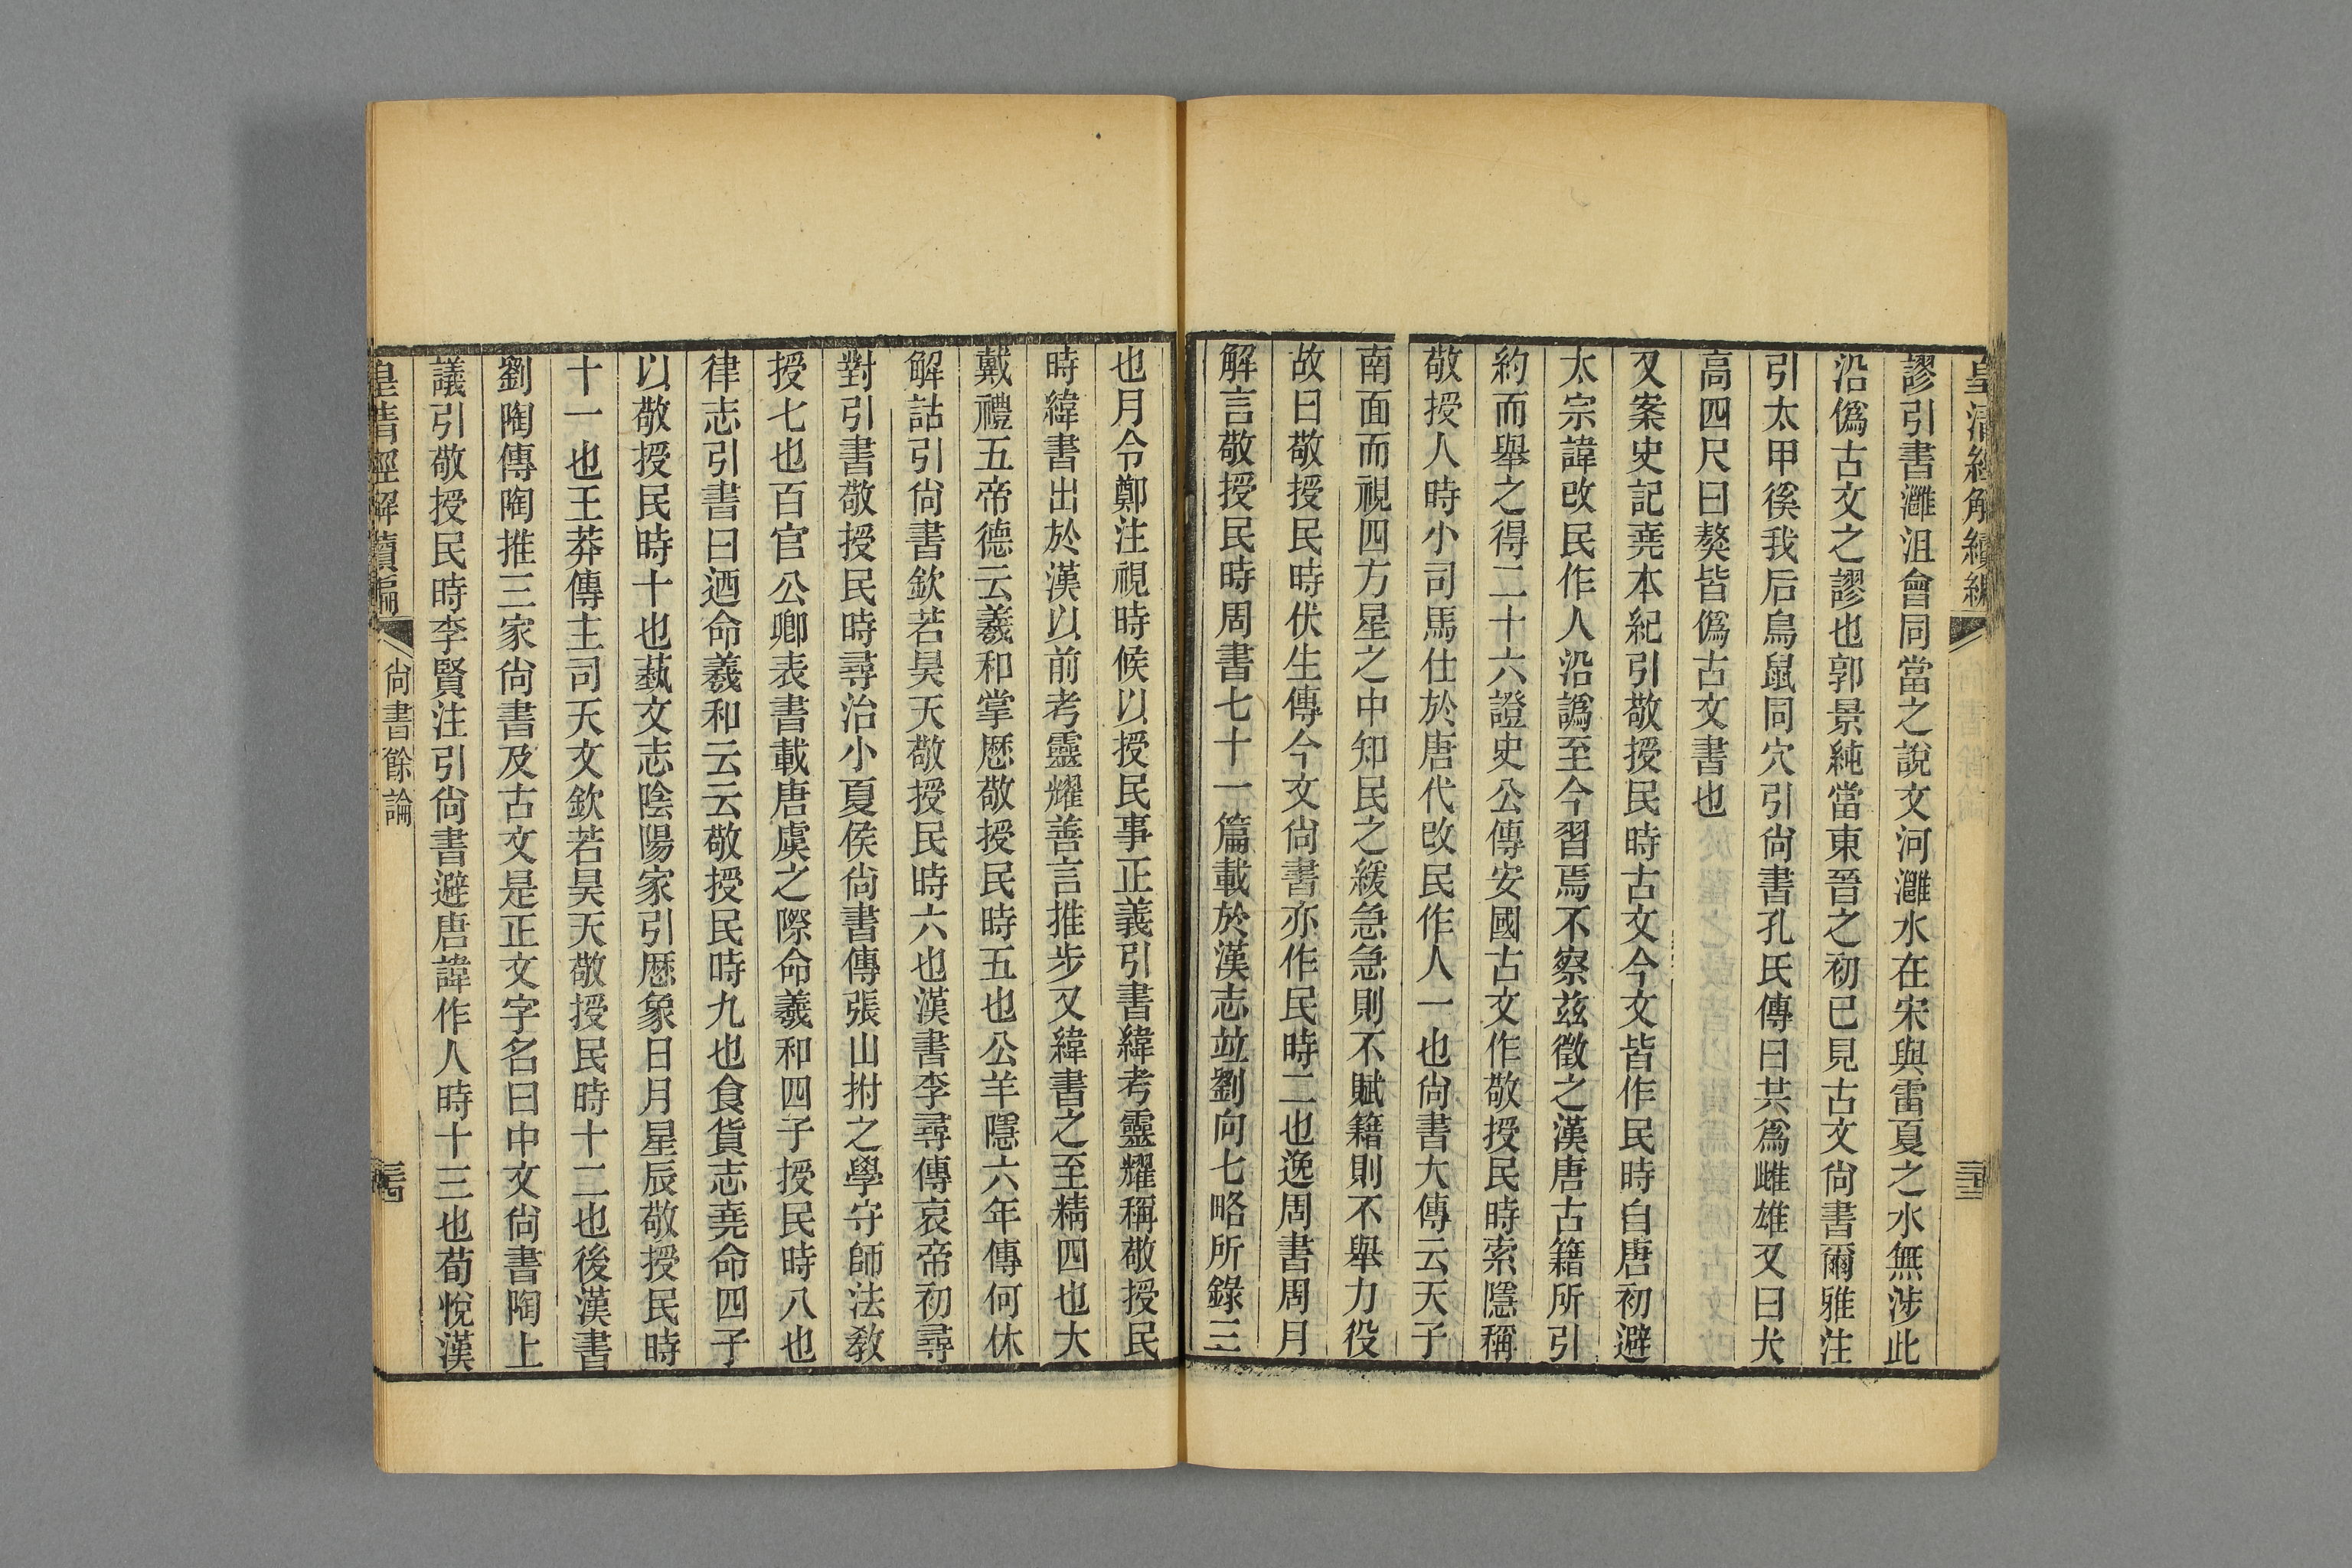 皇清經解續編
三十三
謬引書灉沮會同當之說文河灉水在宋與雷夏之水無涉此
沿僞古文之謬也郭景純當東晉之初已見古文尙書爾雅注
引太甲徯我后鳥鼠同穴引尙書孔氏傳曰共爲雌雄又曰犬
高四尺曰獒皆僞古文書也
又案史記堯本紀引敬授民時古文今文皆作民時自唐初避
太宗諱改民作人沿譌至今習焉不察茲徵之漢唐古籍所引
約而舉之得二十六證史公傳安國古文作敬授民時索隱稱
敬授人時小司馬仕於唐代改民作人一也尙書大傳云天子
南面而視四方星之中知民之緩急急則不賦籍則不舉力役
故曰敬授民時伏生傳今文尙書亦作民時二也逸周書周月
解言敬授民時周書七十一篇載於漢志竝劉向七略所錄三
也月令鄭注視時候以授民事正義引書緯考靈耀稱敬授民
時緯書出於漢以前考靈耀善言推步又緯書之至精四也大
戴禮五帝德云羲和掌厯敬授民時五也公羊隱六年傳何休
解詁引尙書欽若昊天敬授民時六也漢書李尋傳哀帝初尋
對引書敬授民時尋治小夏侯尙書傳張山拊之學守師法敎
授七也百官公卿表書載唐虞之際命羲和四子授民時八也
律志引書曰迺命羲和云云敬授民時九也食貨志堯命四子
以敬授民時十也藝文志陰陽家引厯象日月星辰敬授民時
十一也王莽傳主司天文欽若昊天敬授民時十二也後漢書
劉陶傳陶推三家尙書及古文是正文字名曰中文尙書陶上
議引敬授民時李賢注引尙書避唐諱作人時十三也荀悅漢
皇清經解續編
尙書餘論
三十四